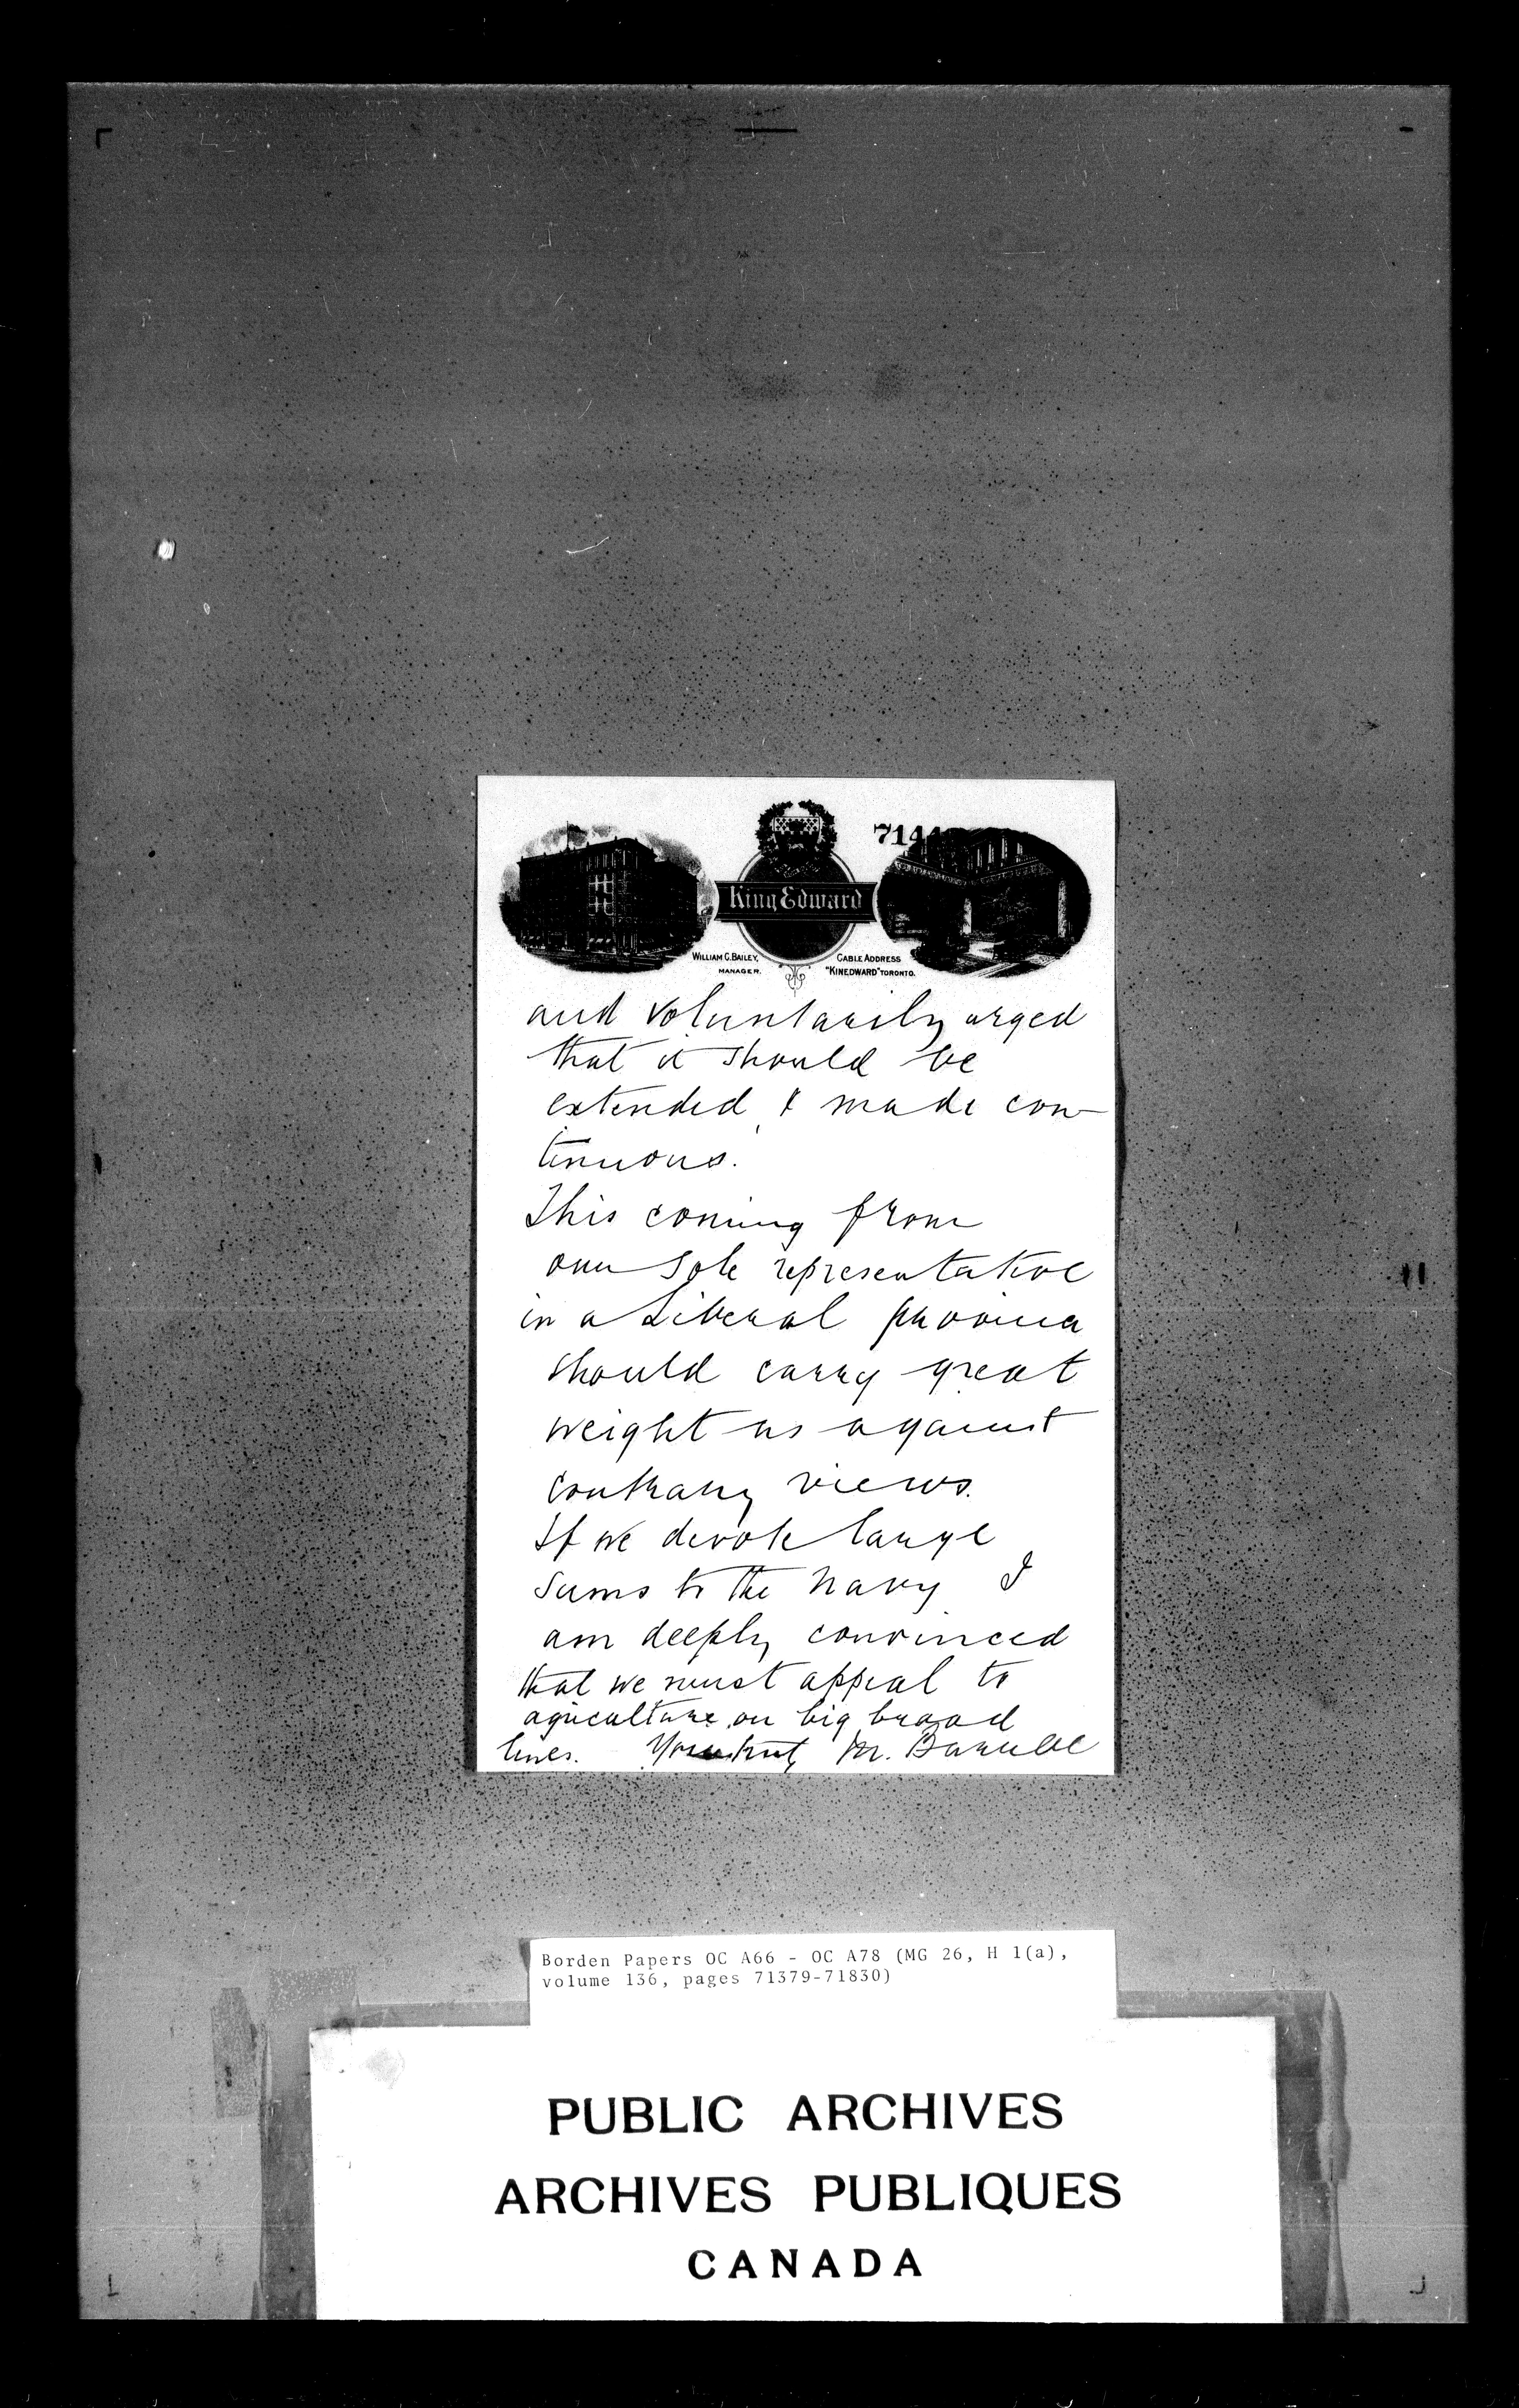 7144
King Edward
WILLIAM C. BAILEY,
MANAGER.
CABLE ADDRESS
"KINEDWARD" TORONTO.
and voluntarily urged
that it should be
extended & made con-
tinuous.
This coming from
our sole representative
in a Liberal province
should carry great
weight as against
contrary views.
If we devote large
sums to the Navy I
am deeply convinced
that we must appeal to
agriculture on big broad
lines. M. Burrell
Borden Papers OC A66 - OC A78 (MG 26, H 1(a),
volume 136, pages 71379-71830)
PUBLIC ARCHIVES
ARCHIVES PUBLIQUES
CANADA